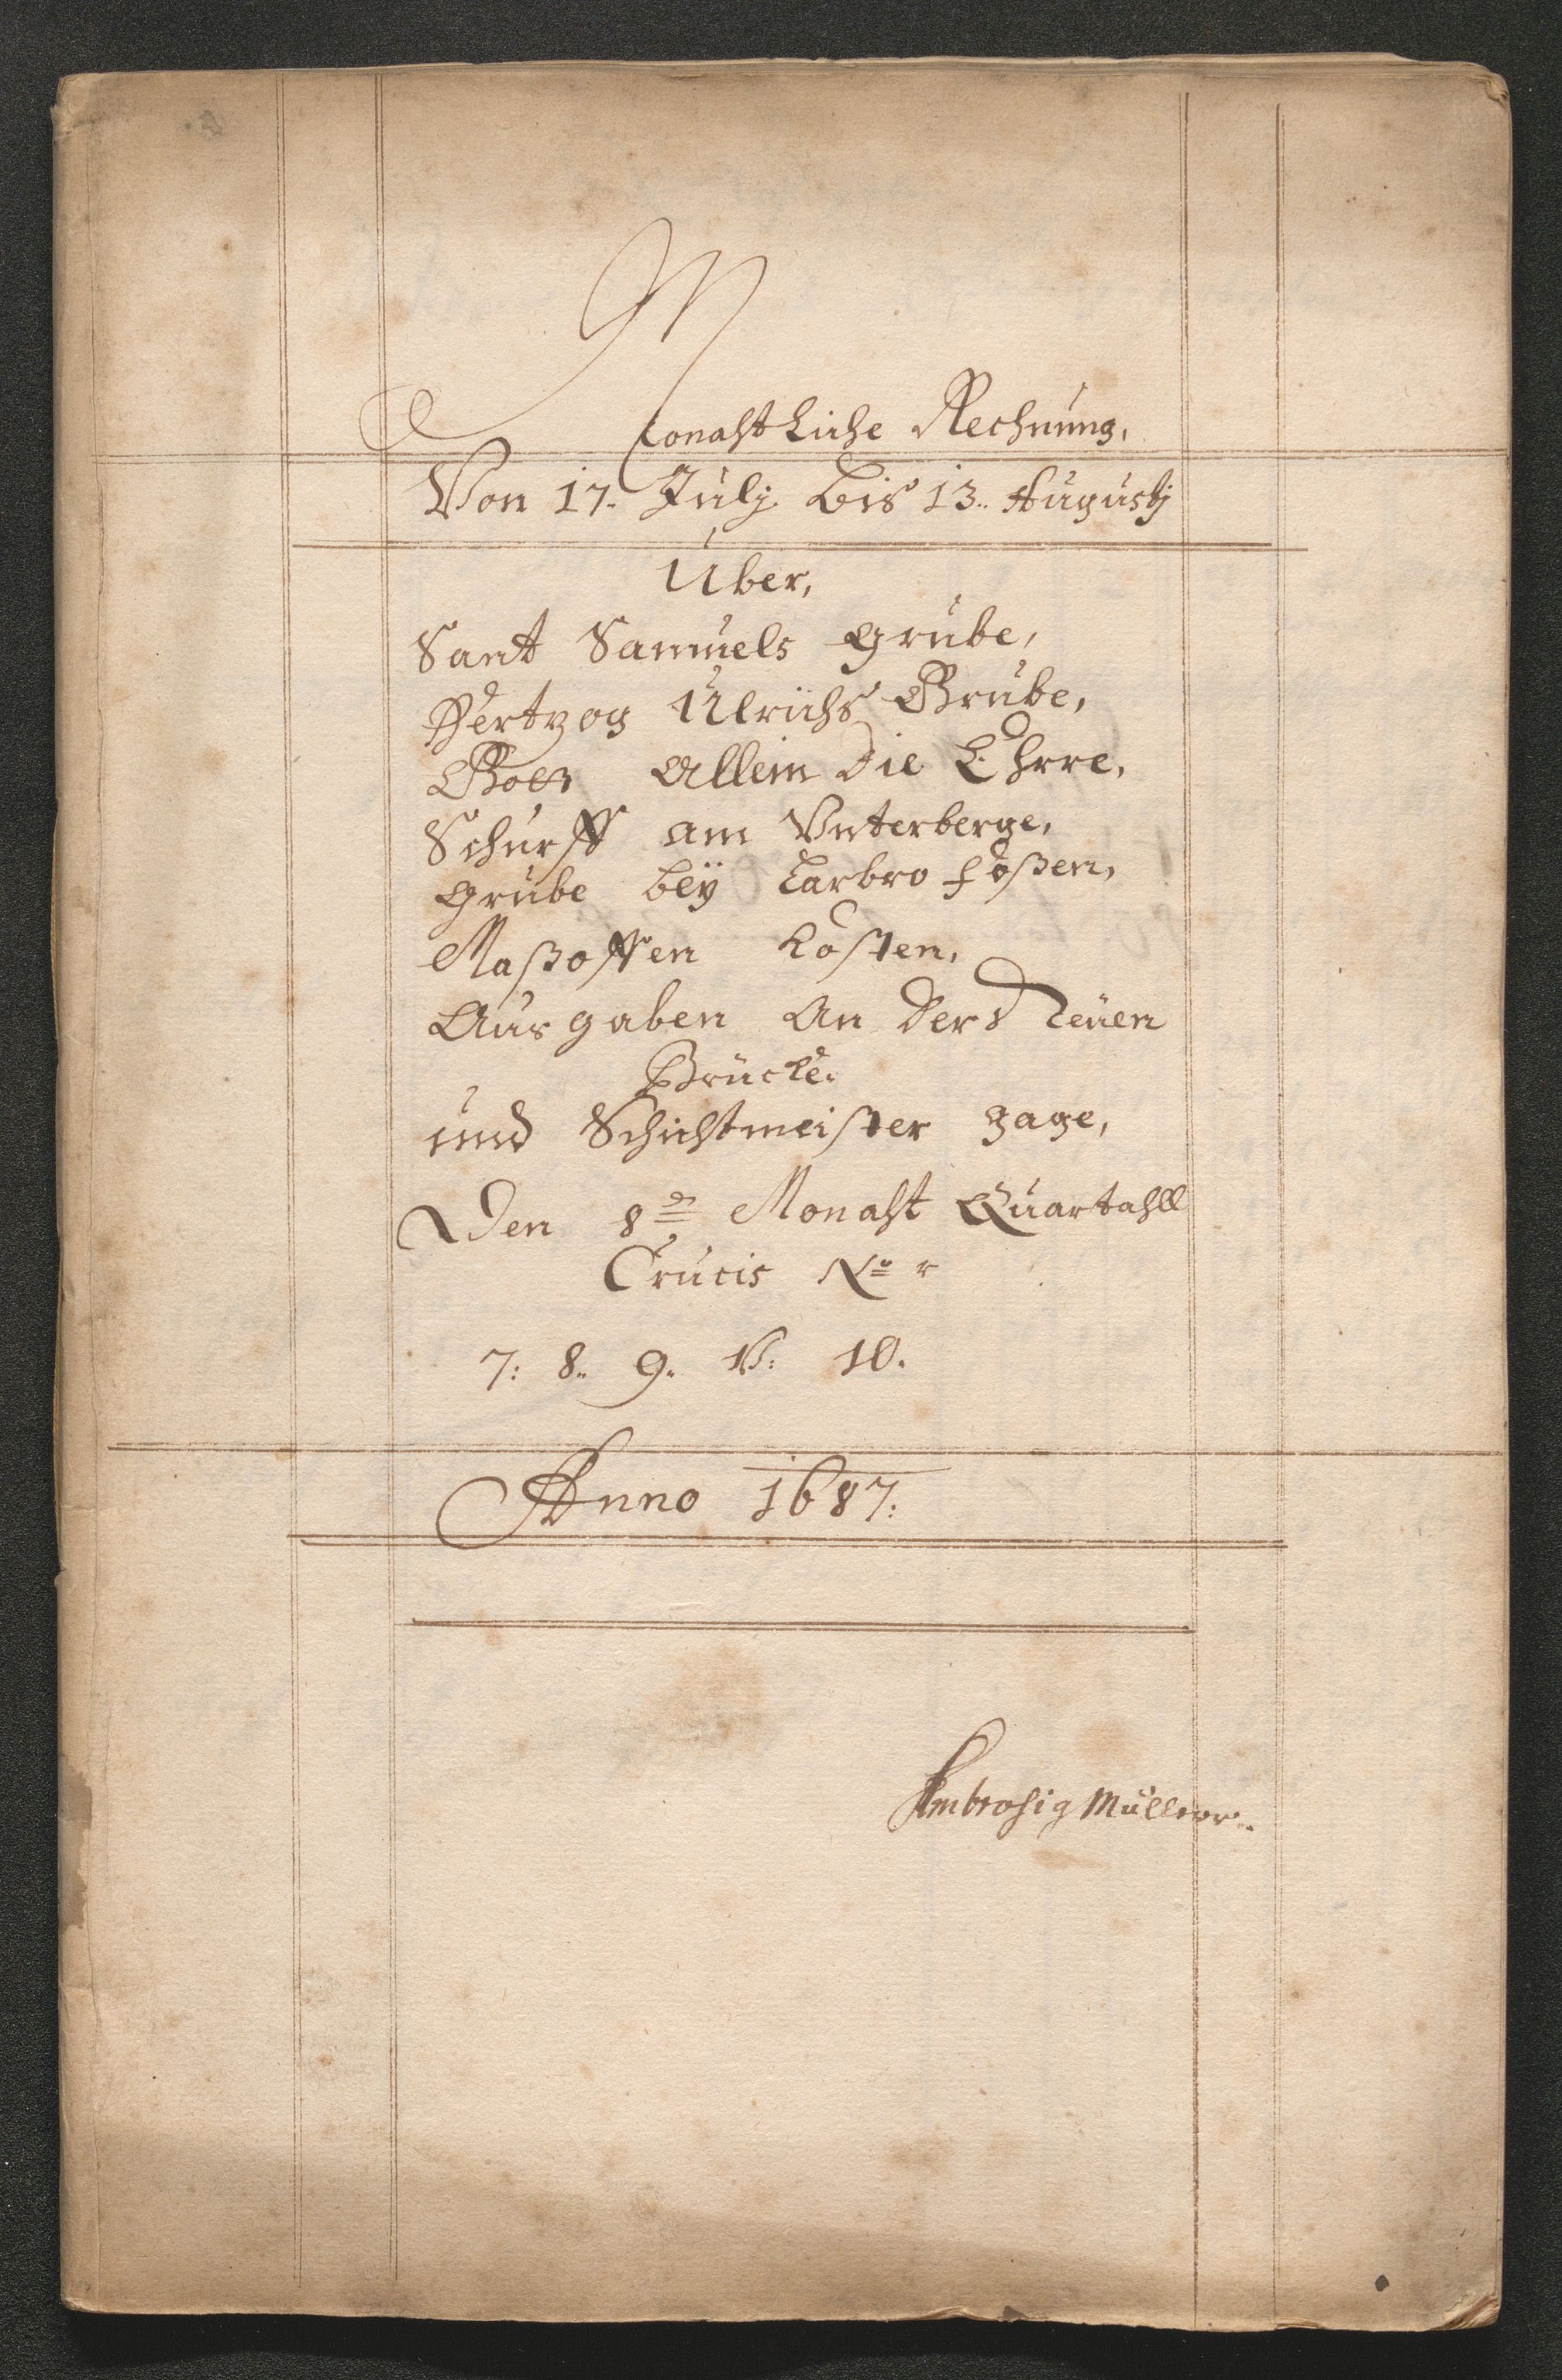 Monahtliche Rechnung,
Von 17. Julij bis 13. Augustj
Über,
Sant Samuels Grube,
Hertzog Ulrichs Grube,
Gott Allein die Ehrre,
Schurff am Unterberge,
Grube bey
Kosten,
Ausgaben an der Neuen
Brücke,
und Schichtmeister gage,
Den 8ten Monaht Quartahll
Crucis No
7: 8. 9. V: 10.
Anno 1687:
Ambrosig Müller